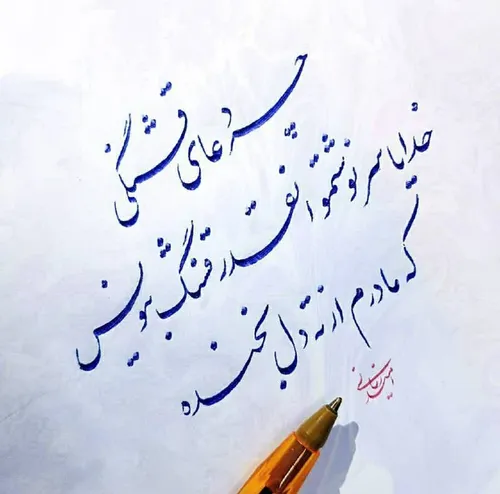 چه دعای قشنگی
خدایا سرنوشتمو انقدر قشنگ بنویس
که مادرم از ته دل بخنده